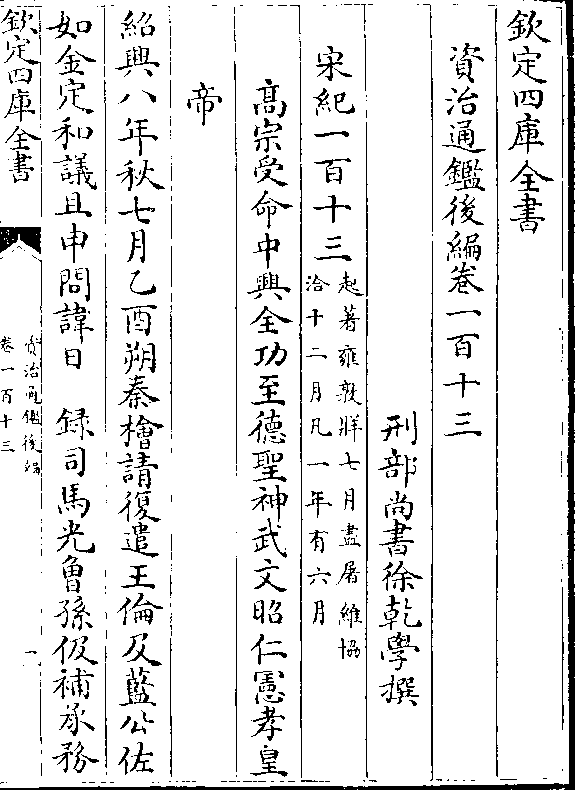 欽定四庫全書
資治通鑑後編卷一百十三
刑部尚書徐乾學撰
宋紀一百十三
起著雍敦牂七月盡屠維協
洽十二月凡一年有六月
高宗受命中興全功至德聖神武文昭仁憲孝皇
帝
紹興八年秋七月乙酉朔秦檜請復遣王倫及藍公佐
如金定和議且申問諱日　録司馬光曾孫伋補承務
欽定四庫全書
資治通鑑後編
卷一百十三
一